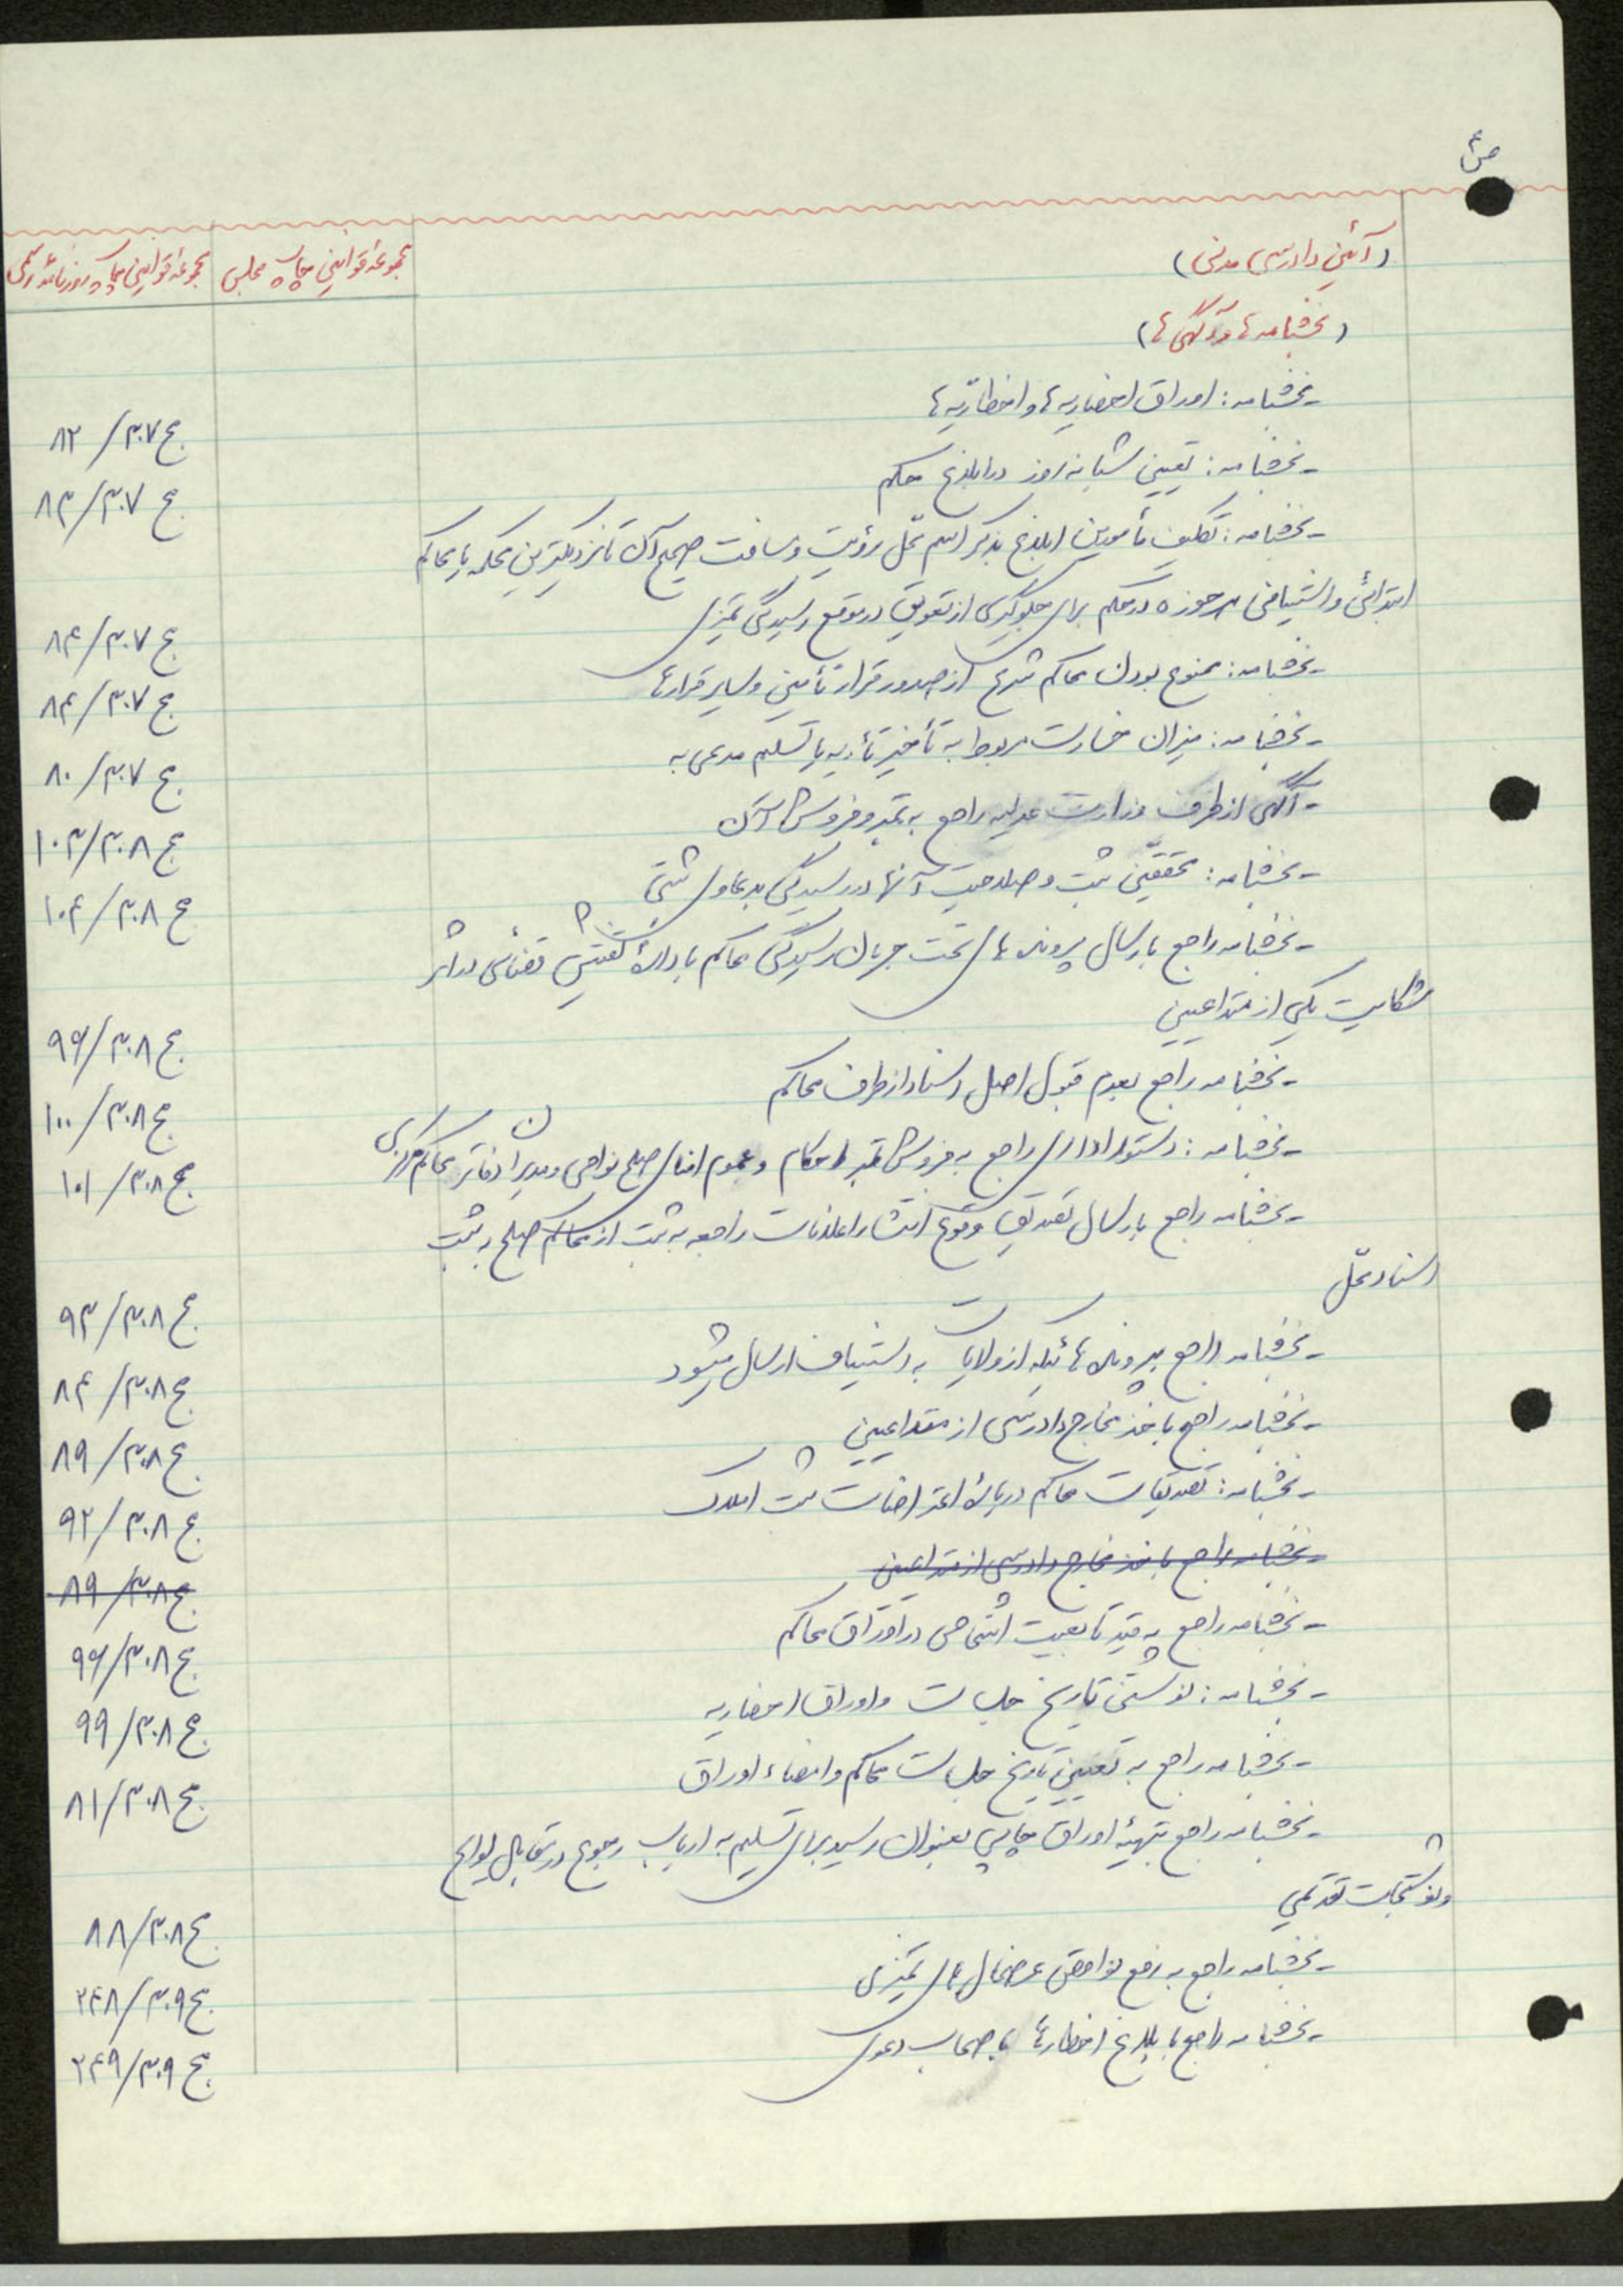 ص۴
(آئین دادرسی مدنی) مجموعه قوانین چاپ مجلس مجموعه قوانین چاپ روزنامه رسمی
(بخشنامه ها و آگهی ها)
- بخشنامه: اوراق احضاریه ها و اخطاریه ها ج ۳۰۷/ ۸۲
- بخشنامه: تعیین شبانه روز در ابلاغ حکم ج ۳۰۷/ ۸۳
- بخشنامه: تکلیف مأمورین ابلاغ بذکر اسم محل رؤیت و مسافت صحیح آن تا نزدیکترین محکمه یا محاکم
ابتدائی و استینافی هر حوزه در حکم برای جلوگیری از تعویق در موقع رسیدگی تمیزی ج ۳۰۷/ ۸۴
- بخشنامه: ممنوع بودن محاکم شرع از صدور قرار تأمین و سایر قرارها ج ۳۰۷/ ۸۴
- بخشنامه: میزان خسارت مربوط به تأخیر تأدیه یا تسلیم مدعی به ج ۳۰۷/ ۸۰
- آگهی از طرف وزارت عدلیه راجع به تمبر و فروش آن ج ۳۰۸/ ۱۰۳
- بخشنامه: محققین ثبت و صلاحیت آنها در رسیدگی بدعاوی ثبتی ج ۳۰۸/ ۱۰۴
- بخشنامه راجع بارسال پرونده های تحت جریان رسیدگی محاکم باداره تفتیش قضائی در اثر
شکایت یکی از متداعیین ج ۳۰۸/ ۹۶
- بخشنامه راجع بعدم قبول اصل اسناد از طرف محاکم ج ۳۰۸/ ۱۰۰
- بخشنامه: دستور اداری راجع به فروش تمبر احکام و عموم امنای صلح نواحی و مدیران دفاتر محاکم مرکزی ج ۳۰۸/ ۱۰۱
- بخشنامه راجع بارسال تصدیق وقوع انتشار اعلانات راجعه به ثبت از محاکم صلح به ثبت
اسناد محل ج ۳۰۸/ ۹۳
- بخشنامه راجع بپرونده هائیکه از ولایات به استیناف ارسال میشود ج ۳۰۸/ ۸۴
- بخشنامه راجع باخذ مخارج دادرسی از متداعیین ج ۳۰۸/ ۸۹
- بخشنامه: تصدیقات محاکم درباره اعتراضات ثبت املاک ج ۳۰۸/ ۹۲
- بخشنامه راجع باخذ مخارج دادرسی از متداعیین ج ۳۰۸/ ۸۹
- بخشنامه راجع به قید تابعیت اشخاص در اوراق محاکم ج ۳۰۸/ ۹۶
- بخشنامه: نوشتن تاریخ جلسات و اوراق احضاریه ج ۳۰۸/ ۹۹
- بخشنامه راجع به تعیین تاریخ جلسات محاکم و امضاء اوراق ج ۳۰۸/ ۸۱
- بخشنامه راجع بتهیه اوراق چاپی بعنوان رسید برای تسلیم به ارباب رجوع در مقابل لوایح
و نوشتجات تقدیمی ج ۳۰۸/ ۸۸
- بخشنامه راجع به رفع نواقص عرضحال های تمیزی ج ۳۰۹/ ۲۴۸
- بخشنامه راجع بابلاغ اخطارها باصحاب دعوی ج ۳۰۹/ ۲۴۹